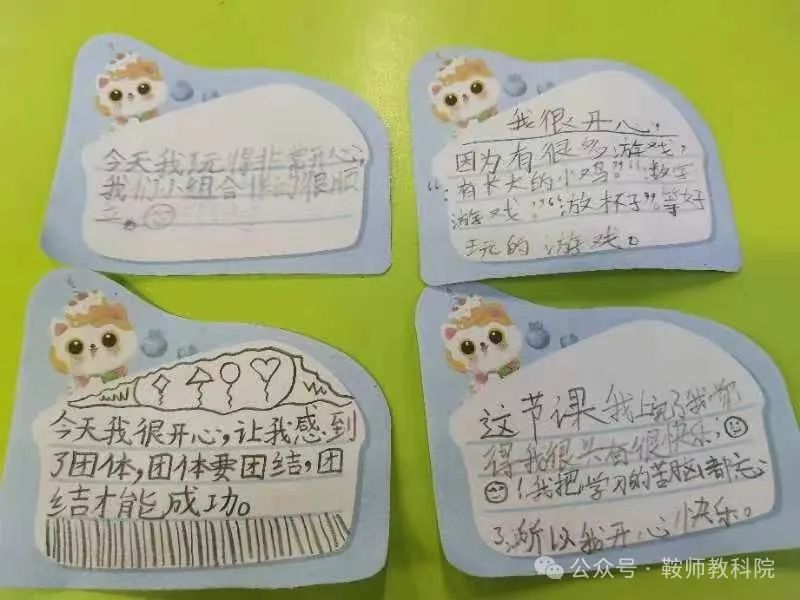 今天我玩得非常开心,
我们小组合作的很顺
我很开心,
因为有很多游戏,
“有长大的小鸡”“数字
游戏”“放杯子”等好
玩的游戏。
今天我很开心,让我感到
了团体,团体要团结,团
结才能成功。
这节课我上完了我觉
得我很兴奋很快乐,
!我把学习的苦脑都忘
了,所以我开心快乐。
公众号·鞍师教科院